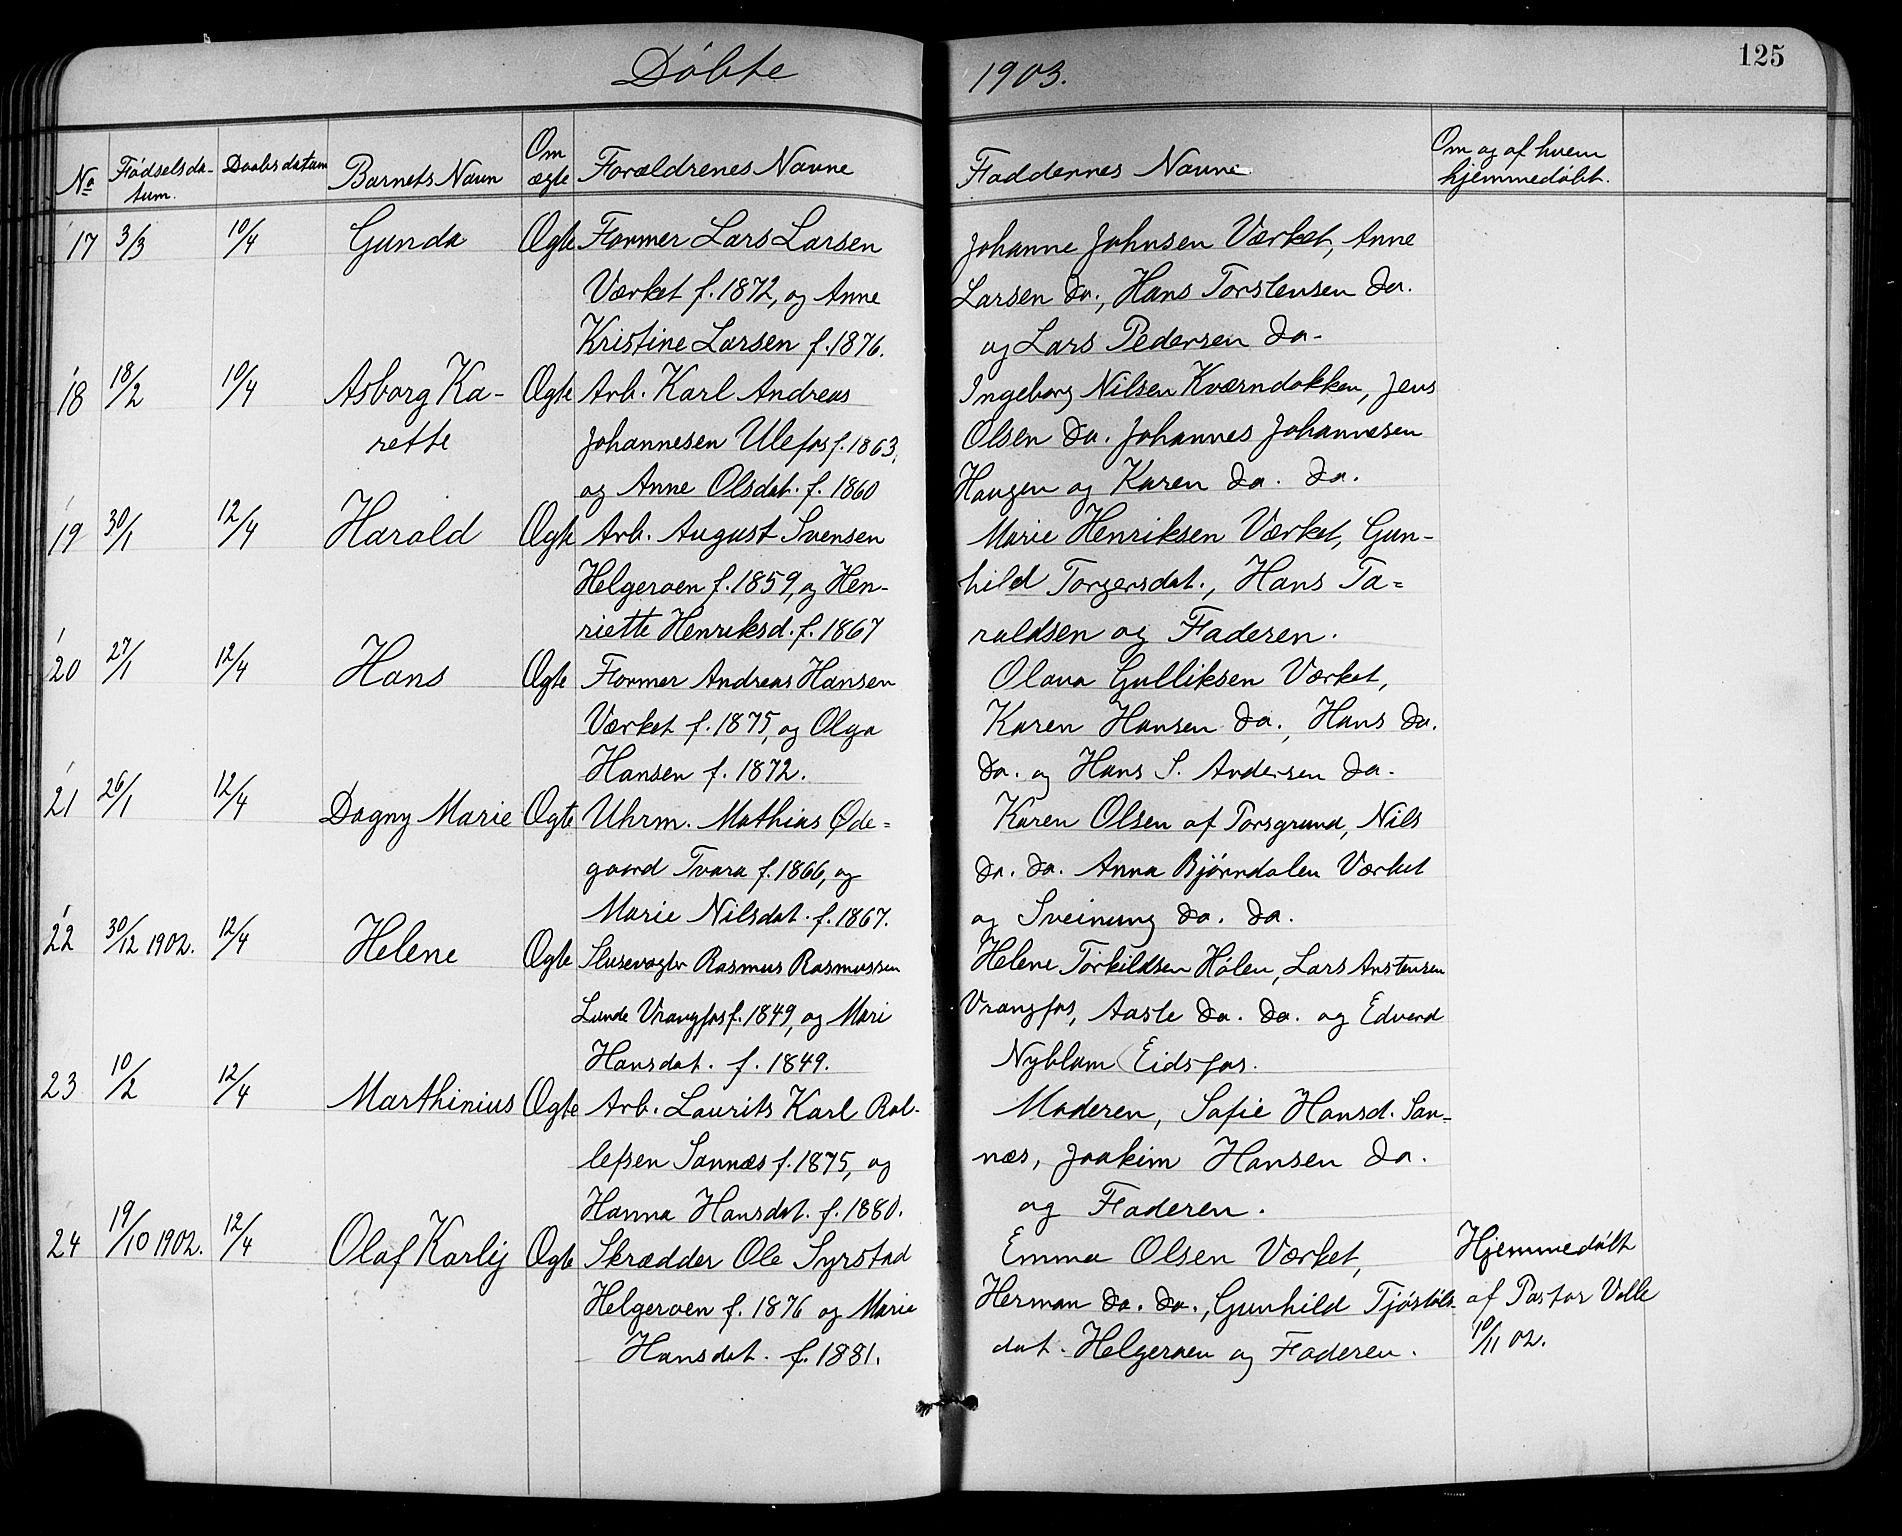 125
Döbte 1903.
No Födselsdatum. Daabsdatum Barnets Navn Om ægte Forældrenes Navne Faddernes Navne Om og af hvem hjemmedöbt.
17 3/3 10/4 Gunda Ægte Former Lars Larsen
Værket f. 1872, og Anne
Kristine Larsen f. 1876.
Johanne Johnsen Værket, Anne
Larsen do., Hans Torstensen do.
og Lars Pedersen do-
18 18/2 10/4 Asborg Ka-
rette
Ægte Arb. Karl Andreas
Johannesen Ulefos f. 1863,
og Anne Olsdat. f. 1860
Ingeborg Nilsen Kværndokken, Jens
Olsen do. Johannes Johannesen
Haugen og Karen do. do.
19 30/1 12/4 Harald Ægte Arb. August Svensen
Helgeroen f. 1859, og Hen-
riette Henriksd. f. 1867
Marie Henriksen Værket, Gun-
hild Torgersdat., Hans Ta=
raldsen og Faderen.
20 27/1 12/4 Hans Ægte Former Andreas Hansen
Værket f. 1875, og Olga
Hansen f. 1872.
Olava Gulliksen Værket,
Karen Hansen do., Hans do.
do. og Hans S. Andersen do.
21 26/1 12/4 Dagny Marie Ægte Uhrm. Mathias Øde=
gaard Tvara f. 1866, og
Marie Nilsdat. f. 1867.
Karen Olsen af Porsgrund, Nils
do. do. Anna Bjørndalen Værket
og Sveinung do. do.
22 30/12 1902. 12/4 Helene Ægte Slusevogter Rasmus Rasmussen
Lunde Vrangfos f. 1849, og Mari
Hansdat. f. 1849.
Helene Torkildsen Hölen, Lars Anstensen
Vrangfos, Aaste do. do. og Edvard
Nyblom Eidsfos.
23 10/2 12/4 Marthinius Ægte Arb. Laurits Karl Rol-
lefsen Sannæs f. 1875, og
Hanna Hansdat. f. 1880.
Moderen, Sofie Hansd. San=
næs, Joakim Hansen do.
og Faderen.
24 19/10 1902. 12/4 Olaf Karlij Ægte Skrædder Ole Syrstad
Helgeroen f. 1876 og Marie
Hansdat. f. 1881.
Emma Olsen Værket,
Herman do. do., Gunhild Tjöstols-
dat. Helgeroen og Faderen.
Hjemmedöbt
af Pastor Valle
10/11 02.